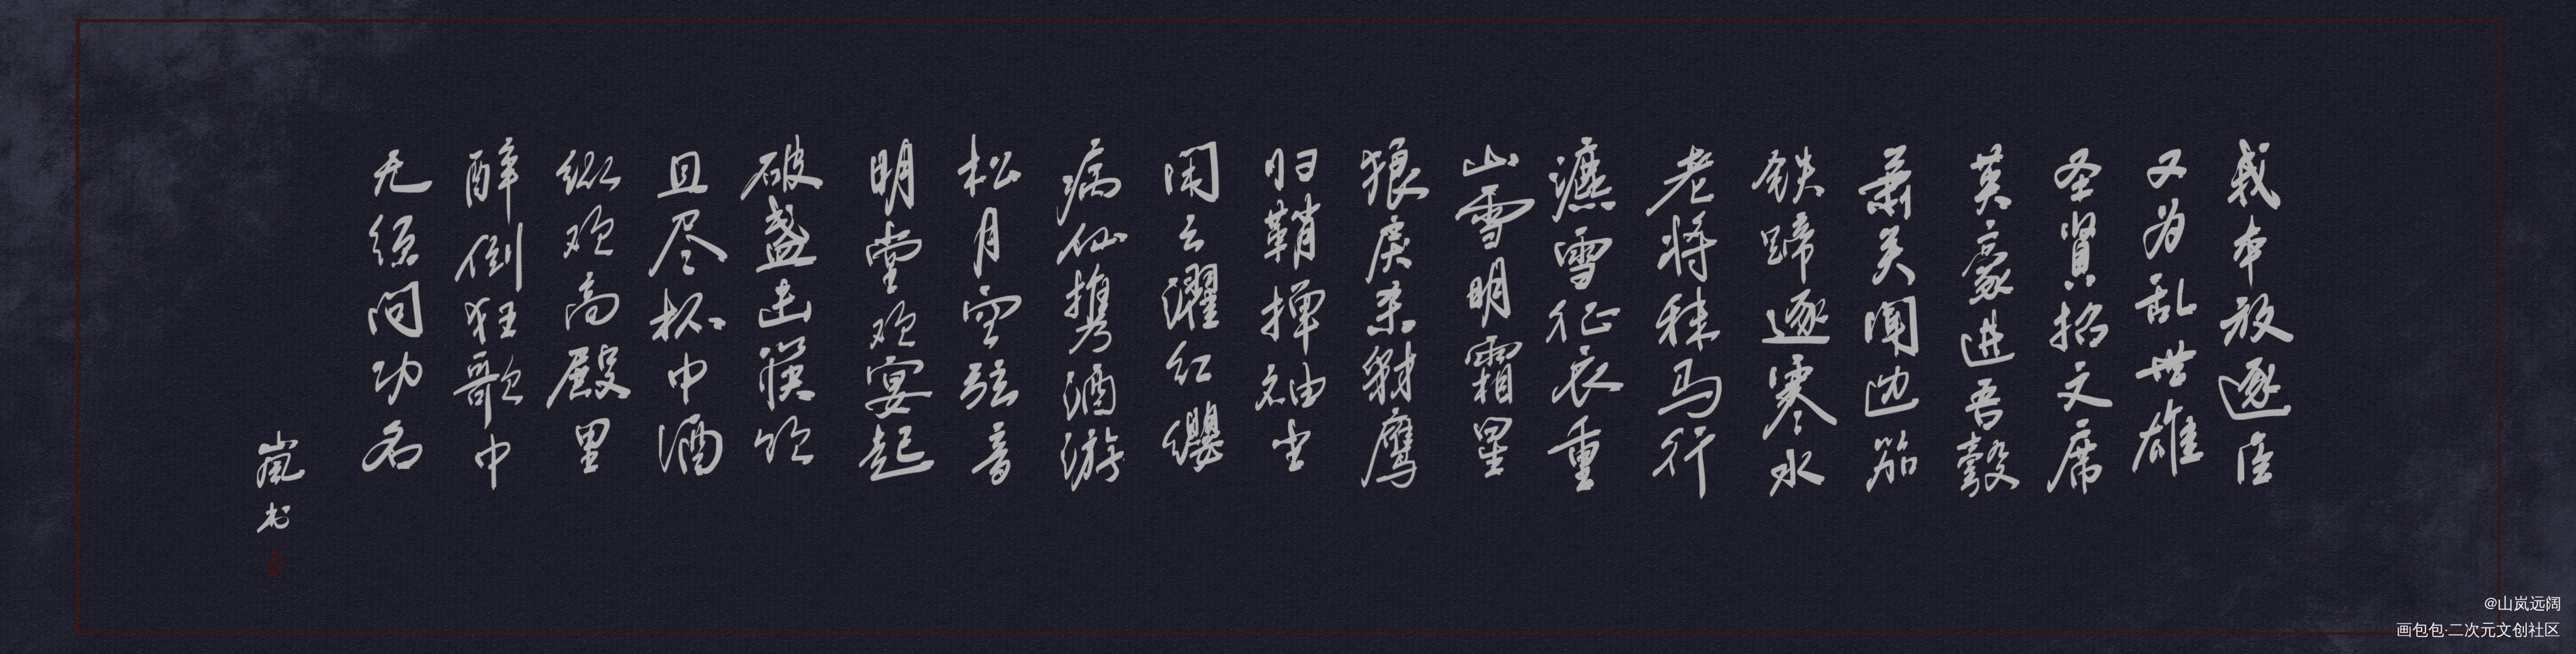 我本放逐臣
又为乱世雄
圣贤招文席
英豪进吾彀
萧关闻边笳
铁蹄逐寒水
老将秣马行
瀌雪征衣重
山雪明霜星
狼戾柔豺鹰
归鞘掸袖尘
闲云濯红缨
病仙携酒游
松月空弦音
明堂欢宴起
破盏击筷吟
且尽杯中酒
纵欢高殿里
醉倒狂歌中
无须问功名
岚书
@山岚远阔
画包包·二次元文创社区